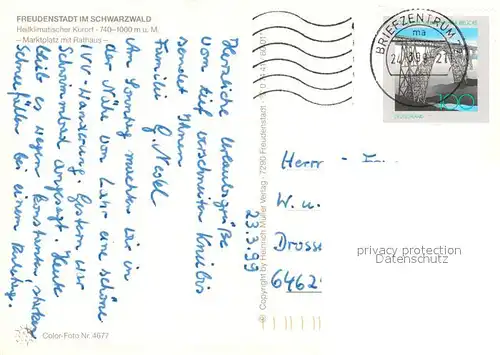 FREUDENSTADT IM SCHWARZWALD
Heilklimatischer Kurort · 740-1000 m u. M.
- Marktplatz mit Rathaus -
Herzliche Urlaubsgrüße
vom tief verschneiten Kniebis
sendet Ihnen
Familie G.
Am Sonntag machten wir in
der Nähe von Lahr eine schöne
IVV-Wanderung. Gestern war
Schwimmbad angesagt. Heute
bleibt es wegen konstanten, starken
Schneefällen bei einem Ruhetag.
Color-Foto Nr. 4677
© Copyright by Heinrich Müller Verlag · 7290 Freudenstadt
23.3.99
BRIEFZENTRUM
ma
100
DEUTSCHLAND
Herr
W. u.
Dross
6462
privacy protection
Datenschutz